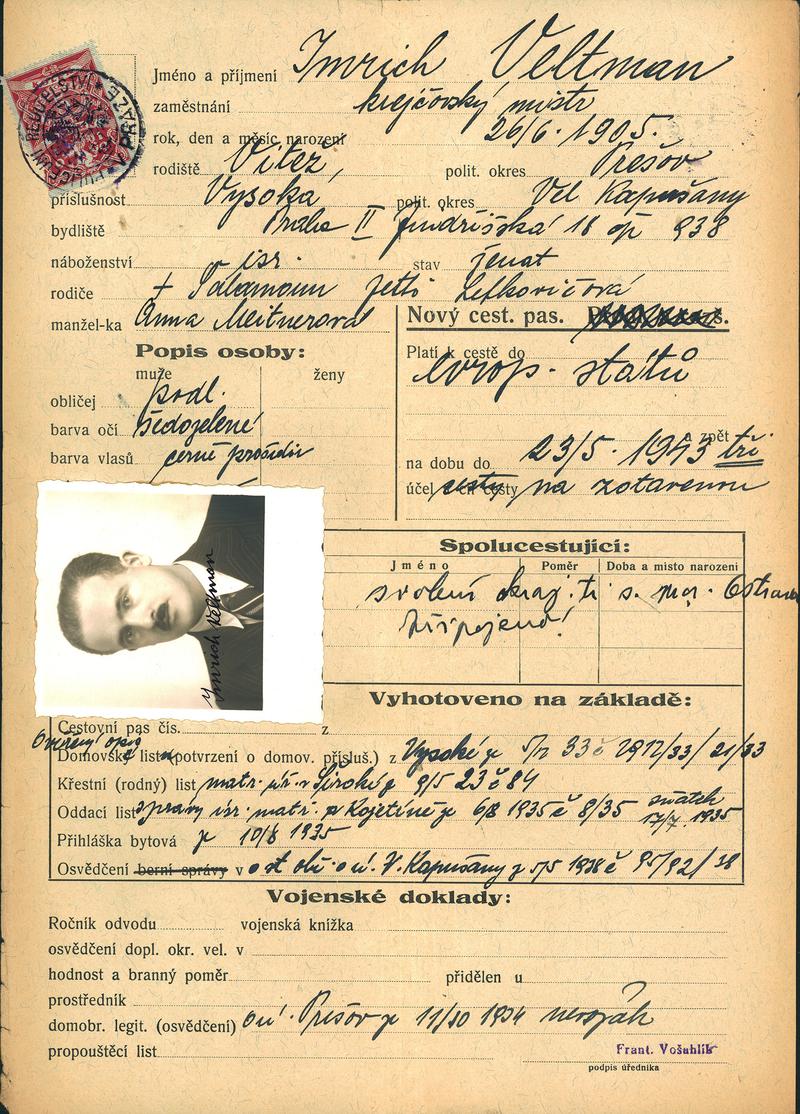 Jméno a příjmení Imrich Veltman
zaměstnání krejčovský mistr
rok, den a měsíc narození 26/6. 1905.
rodiště Vitež, polit. okres Prešov
příslušnost Vysoká polit. okres Vel Kapušany
bydliště Praha II Jindřišská 18 čp 938
náboženství isr. stav ženat
rodiče + Salamoun Jetti Lefkovičová
manžel-ka Anna Meitnerová
Nový cest. pas.
Popis osoby:
Platí k cestě do
muže ženy
evrop. států
obličej podl.
barva očí šedozelené
a zpět
barva vlasů černé
na dobu do 23/5. 1943 tři
účel cesty na zotavenou
Imrich Veltman
Spolucestující:
Jméno Poměr Doba a místo narození
svolení s. mor. Ostrava
připojeno!
Vyhotoveno na základě:
Cestovní pas čís. z
Ověřený opis
Domovský list (potvrzení o domov. přísluš.) z Vysoké 2912/33/ 21/33
Křestní (rodný) list matr. úř. v Široké z 9/5 23 č 84
Oddací list správy isr. matr. v Kojetíně z 6/8 1935 č 8/35 sňatek 17/7. 1935
Přihláška bytová z 10/8 1935
Osvědčení berní správy v V. Kapušany z 5/5 1938 č 95/92/38
Vojenské doklady:
Ročník odvodu vojenská knížka
osvědčení dopl. okr. vel. v
hodnost a branný poměr přidělen u
prostředník
domobr. legit. (osvědčení) oú. Prešov z 11/10 1934 nevoják
propouštěcí list
Frant. Vošahlík
podpis úředníka